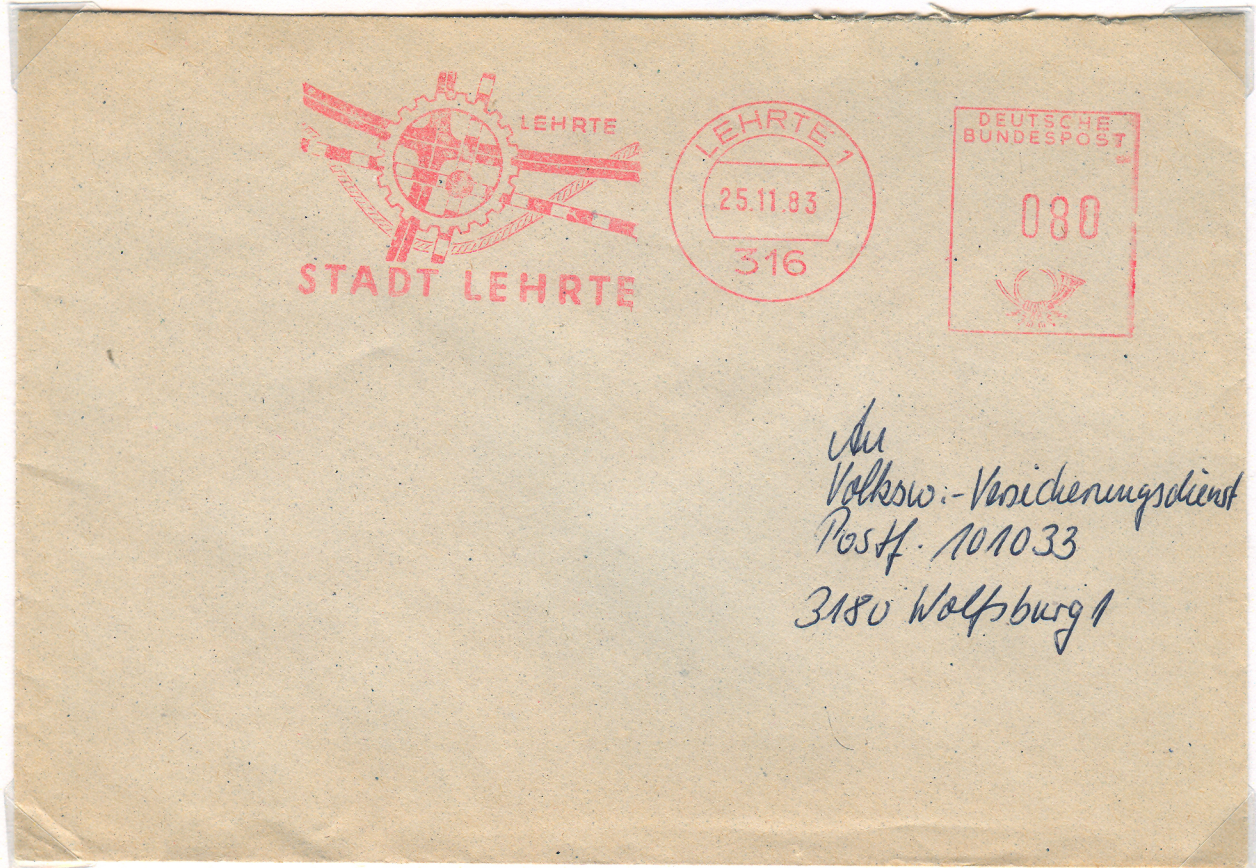 LEHRTE
STADT LEHRTE
LEHRTE 1
25.11.83
316
DEUTSCHE
BUNDESPOST
080
An
Volksw.-Versicherungsdienst
Postf. 101033
3180 Wolfsburg 1